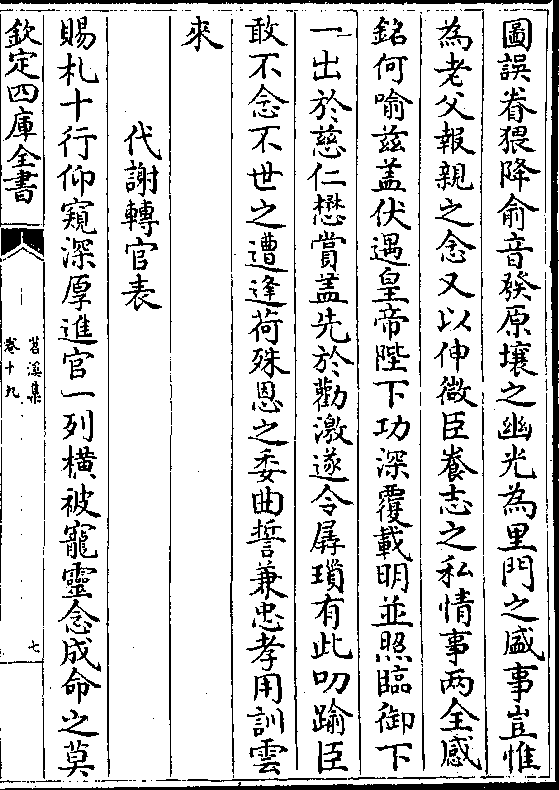 圖誤眷猥降俞音發原壤之幽光為里門之盛事豈惟
為老父報親之念又以伸微臣養志之私情事两全感
銘何喻兹盖伏遇皇帝陛下功深覆載明並照臨御下
一出於慈仁懋賞盖先於勸激遂令孱瑣有此叨踰臣
敢不念不世之遭逢荷殊恩之委曲誓兼忠孝用訓雲
來
代謝轉官表
賜札十行仰窺深厚進官一列横被寵靈念成命之莫
欽定四庫全書
苕溪集
卷十九
七